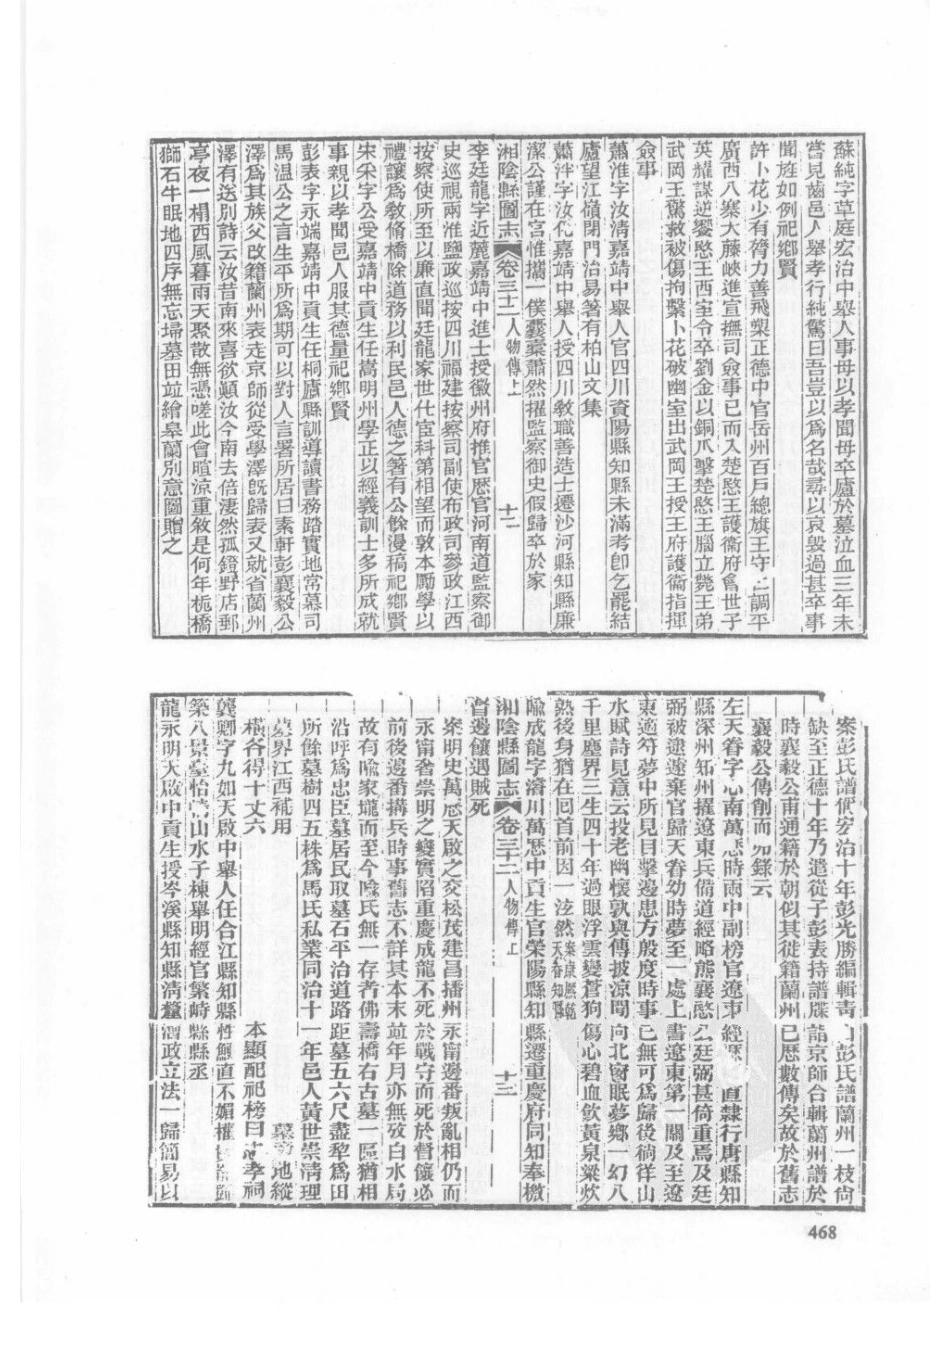 蘇純字草庭宏治中舉人事母以孝聞母卒廬於墓泣血三年未
嘗見齒邑人舉孝行純驚曰吾豈以爲名哉尋以哀毀過甚卒事
聞旌如例祀鄉賢
許卜花少有膂力善飛槊正德中官岳州百戶總旗王守上調平
廣西八寨大藤峽進宣撫司僉事已而入楚愍王護衞府爲世子
英耀謀逆饗愍王西室令卒劉金以銅爪擊楚愍王腦立斃王弟
武岡王驚救被傷拘繫卜花破幽室出武岡王授王府護衞指揮
僉事
蕭淮字汝清嘉靖中舉人官四川資陽縣知縣未滿考卽乞罷結
廬望江嶺閉門治易著有柏山文集
蕭泮字汝化嘉靖中舉人授四川敎職善造士遷沙河縣知縣廉
潔公謹在官惟攜一僕囊橐蕭然擢監察御史假歸卒於家
湘陰縣圖志 卷三十二 人物傳上 十二
李廷龍字近麓嘉靖中進士授徽州府推官歷官河南道監察御
史巡視兩淮鹽政巡按四川福建按察司副使布政司參政江西
按察使所至以廉直聞廷龍家世仕宦科第相望而敦本勵學以
禮讓爲敎脩橋除道務以利民邑人德之著有公餘漫稿祀鄉賢
宋宋字公受嘉靖中貢生任嵩明州學正以經義訓士多所成就
事親以孝聞邑人服其德量祀鄉賢
彭表字永端嘉靖中貢生任桐廬縣訓導讀書務踏實地常慕司
馬溫公之言生平所爲期可以對人言署所居曰素軒彭襄毅公
澤爲其族父改籍蘭州表走京師從受學澤旣歸表又就省蘭州
澤有送別詩云汝昔南來喜欲顚汝今南去倍凄然孤鐙野店郵
亭夜一榻西風暮雨天聚散無憑嗟此會暄涼重敘是何年梔橋
獅石牛眠地四序無忘埽墓田竝繪皋蘭別意圖贈之
案彭氏譜宏治十年彭光勝編輯靑口彭氏譜蘭州一枝尙
缺至正德十年乃遣從子彭表持譜牒詣京師合輯蘭州譜於
時襄毅公甫通籍於朝似其徙籍蘭州已歷數傳矣故於舊志
襄毅公傳削而錄云
左天眷字心南萬歷時兩中副榜官遼東經歷直隸行唐縣知
縣深州知州擢遼東兵備道經略熊襄愍公廷弼甚倚重焉及廷
弼被逮遂棄官歸天眷幼時夢至一處上書遼東第一關及至遼
東適符夢中所見目擊邊患方殷度時事已無可爲歸後徜徉山
水賦詩見意云投老幽懷孰與傳披涼閣向北窗眠夢鄉一幻八
千里塵界三生四十年過眼浮雲變蒼狗傷心碧血飲黃泉粱炊
熟後身猶在回首前因一泫然
喩成龍字濳川萬歷中貢生官榮陽縣知縣遷重慶府同知奉檄
湘陰縣圖志 卷三十二 人物傳上 十三
督邊饟遇賊死
案明史萬歷天啟之交松茂建昌播州永甯邊番叛亂相仍而
永甯奢崇明之變實陷重慶成龍不死於戰守而死於督饟必
前後邊番搆兵時事舊志不詳其本末竝年月亦無攷白水局
故有喩家壠而至今喩氏無一存者佛壽橋右古墓一區猶相
沿呼爲忠臣墓居民取墓石平治道路距墓五六尺盡犂爲田
所餘墓樹四五株爲馬氏私業同治十一年邑人黃世崇淸理
墓界江西補用本顯配祀榜曰忠孝祠墓地縱
橫各得十丈六
龔鯽字九如天啟中舉人任合江縣知縣性鯁直不媚權
築八景臺怡山水子棟舉明經官繁峙縣縣丞
龍永明天啟中貢生授岑溪縣知縣淸釐政立法一歸簡易以
468